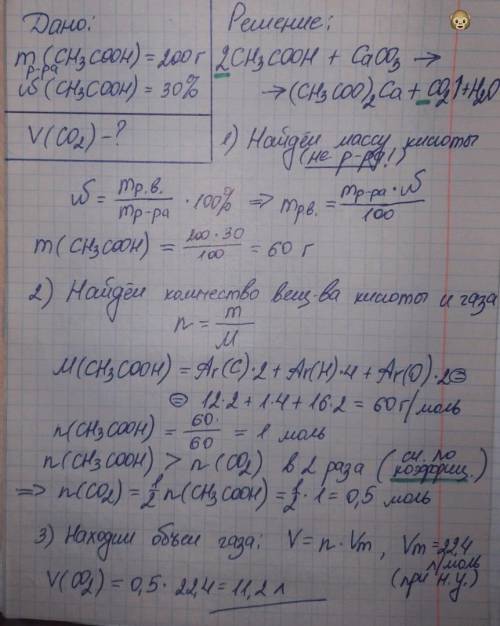 Дано:
m р-ра (CH3COOH) = 200 г
ω (CH3COOH) = 30%
V(CO2) - ?
Решение:
2CH3COOH + CaCO3 →
→(CH3COO)2Ca + CO2↑+H2O
1) Найдём массу кислоты
(не р-ра!)
ω = mр.в. / mр-ра · 100% => mр.в. = mр-ра · ω / 100
m(CH3COOH) = 200·30 / 100 = 60 г
2) Найдём количество вещ-ва кислоты и газа
n = m / M
M(CH3COOH) = Ar(C)·2 + Ar(H)·4 + Ar(O)·2 =
= 12·2 + 1·4 + 16·2 = 60 г/моль
n(CH3COOH) = 60 / 60 = 1 моль
n(CH3COOH) > n(CO2) в 2 раза (см. по коэффиц.)
=> n(CO2) = 1/2 n(CH3COOH) = 1/2 · 1 = 0,5 моль
3) Находим объём газа: V = n · Vm, Vm = 22,4 л/моль
(при н.у.)
V(CO2) = 0,5 · 22,4 = 11,2 л